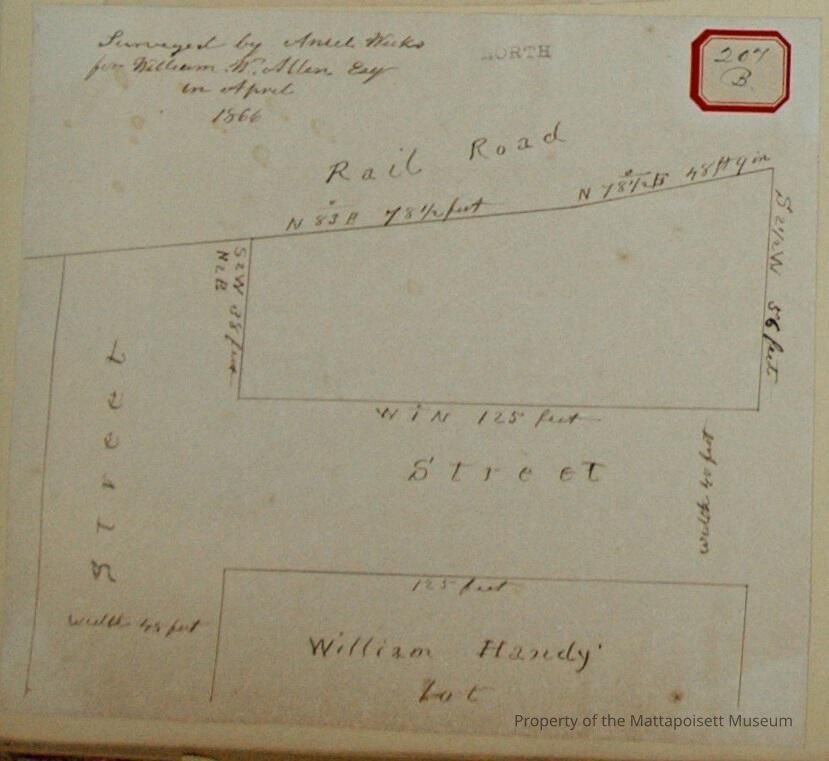 Surveyed by Ansel Weeks
for William W. Allen Esqr
in April
1866
NORTH
207
B.
Rail Road
N 83 E 78 1/2 feet
N 78 1/2 E 48 ft 9 in
S 2 W 38 feet
N 2 E
S 2 1/2 W 56 feet
W 1 N 125 feet
Street
Street
width 40 feet
125 feet
width 45 feet
William Handy
Lot
Property of the Mattapoisett Museum